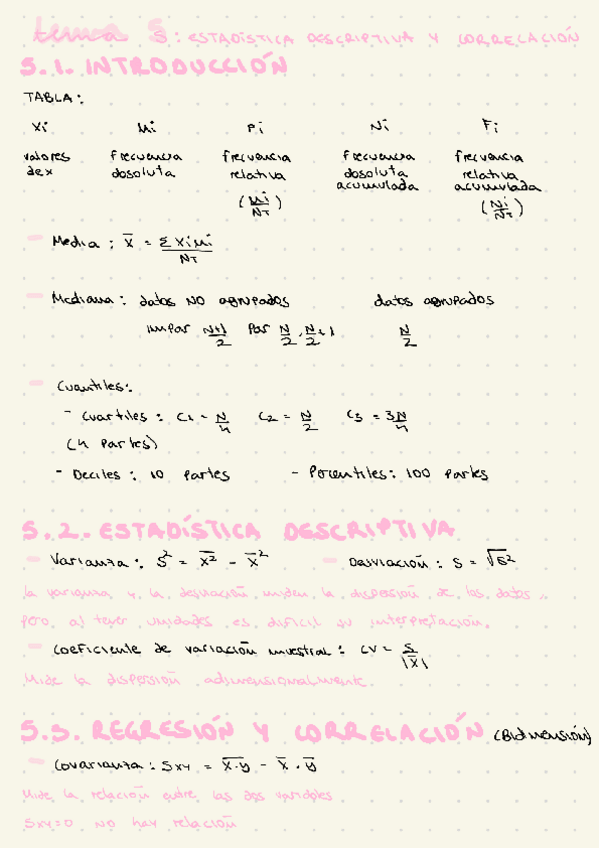 tema 5: ESTADÍSTICA DESCRIPTIVA Y CORRELACIÓN
5.1. INTRODUCCIÓN
TABLA:
xi ni Pi Ni Fi
valores de x frecuencia absoluta frecuencia relativa (ni/NT) frecuencia absoluta acumulada frecuencia relativa acumulada (Ni/NT)
- Media: x̄ = Σxini/NT
- Mediana: datos NO agrupados datos agrupados
impar N+1/2 Par N/2, N/2+1 N/2
- Cuantiles:
- Cuartiles: C1 = N/4 C2 = N/2 C3 = 3N/4
(4 Partes)
- Deciles: 10 Partes - Percentiles: 100 Partes
5.2. ESTADÍSTICA DESCRIPTIVA
- Varianza: S² = x̄² - x̄² - Desviación: S = √S²
la varianza y la desviación miden la dispersión de los datos,
pero al tener unidades es difícil su interpretación.
- Coeficiente de variación muestral: CV = S/|x̄|
Mide la dispersión adimensionalmente.
5.3. REGRESIÓN Y CORRELACIÓN (Bidimensión)
- Covarianza: Sxy = x̄·y - x̄ · ȳ
Mide la relación entre las dos variables
Sxy=0 no hay relación